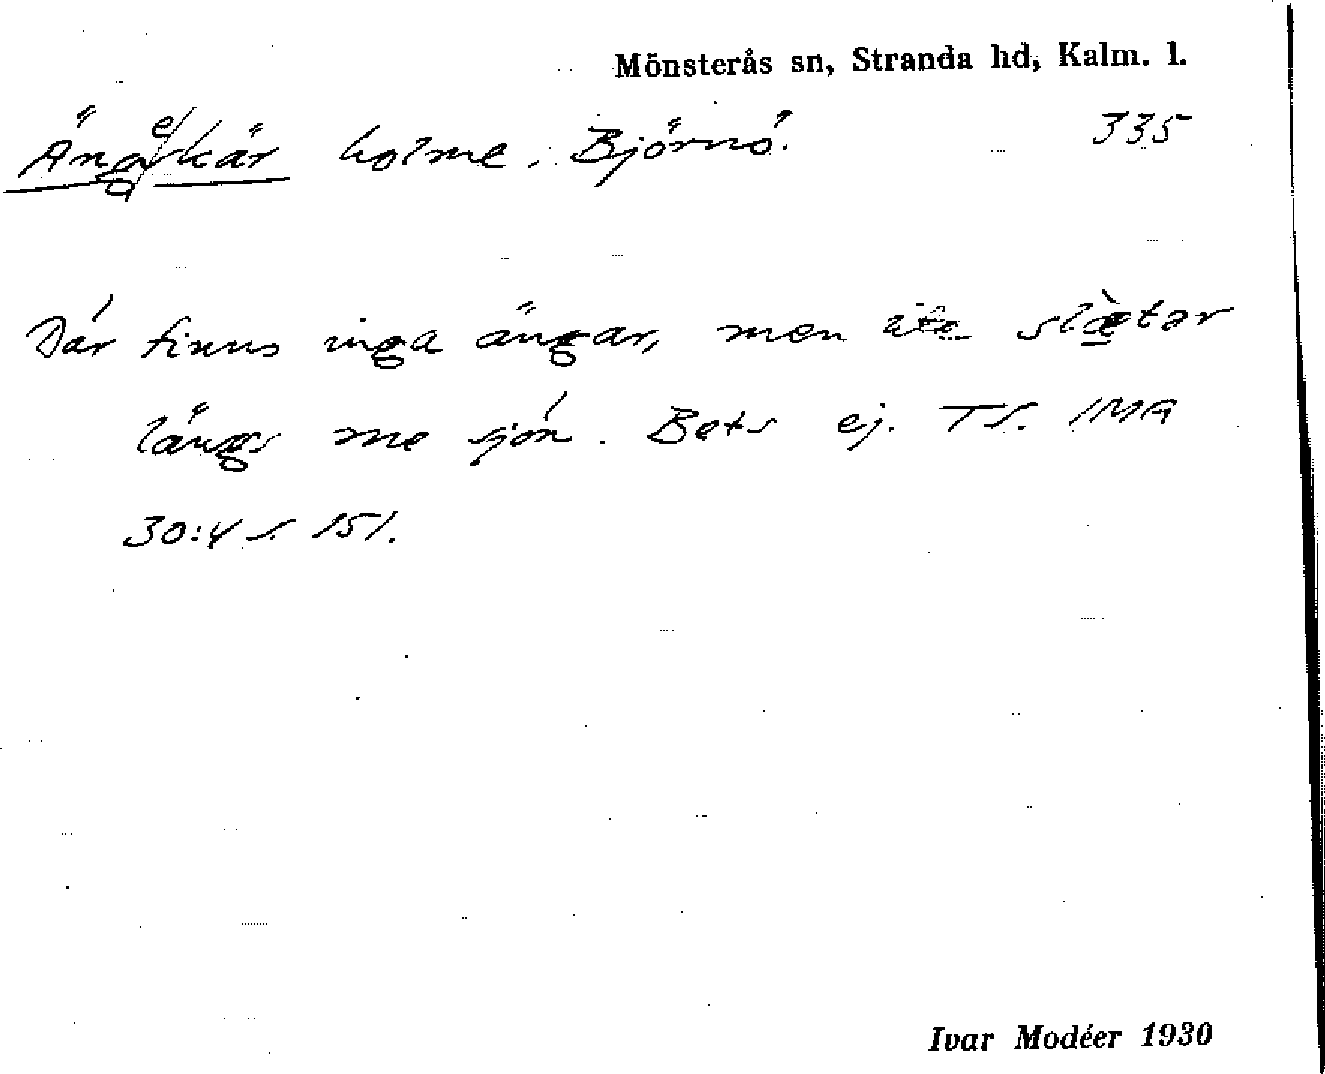 Mönsterås sn, Stranda hd, Kalm. l.
Äng e/ skär holme, Björnö. 335
Där finns inga ängar, men slæter
längs me sjön. Bets ej. TS. IMA
30:4 s. 151.
Ivar Modéer 1930